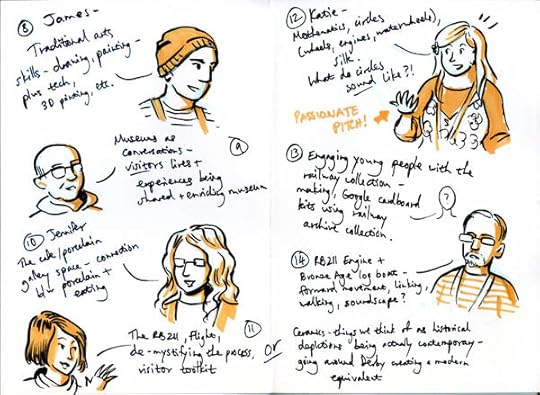 8 James -
Traditional arts
skills - drawing, painting -
plus tech,
3D printing, etc.
9
Museums as
conversations -
visitors lives +
experiences being
shared + enriching museum
10 Jennifer
The cafe/porcelain
gallery space - connection
btw porcelain +
eating
11
The RB211, flight,
de-mystifying the process,
visitor toolkit
or
12 Katie -
Mathematics, circles
(wheels, engines, waterwheels),
silk.
What do circles
sound like?!
PASSIONATE
PITCH!
13 Engaging young people with the
railway collection -
making, Google cardboard
kits using railway
archive collection.
?
14 RB211 Engine +
Bronze Age log boat -
forward movement, linking,
walking, soundscape?
Ceramics - things we think of as historical
depictions being actually contemporary -
going around Derby creating a modern
equivalent